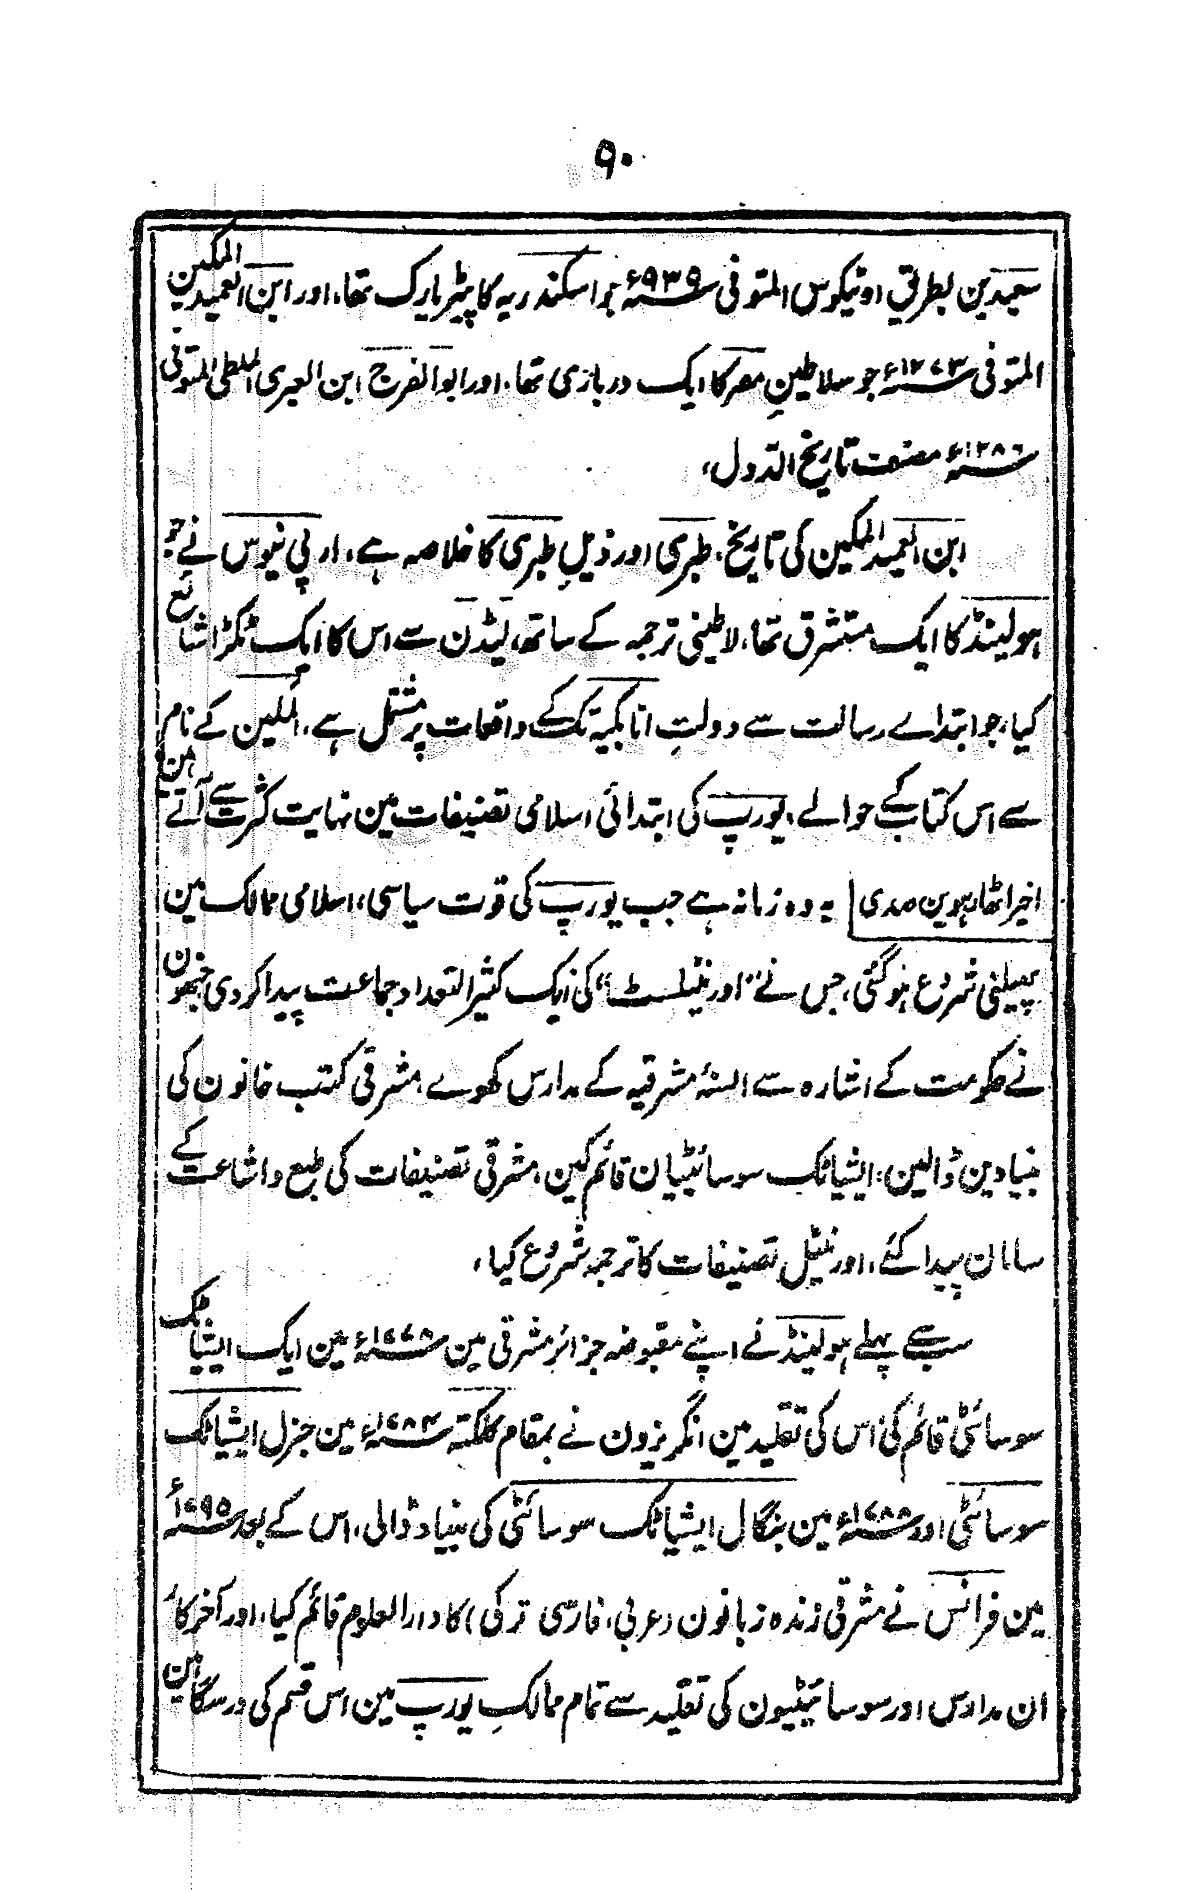 ۹۰
سعید بن بطریق اوٹیکوس المتوفی ۹۳۹ء جو اسکندریہ کا پیٹریارک تھا، اور ابن العمید المکین
المتوفی ۱۲۷۳ء جو سلاطینِ مصر کا ایک درباری تھا، اور ابو الفرج ابن العبری الملطی المتوفی
۱۲۸۶ء مصنف تاریخ الدول،
ابن العمید المکین کی تاریخ، طبری اور ذیلِ طبری کا خلاصہ ہے، ارپی نیوس نے جو
ہولینڈ کا ایک مستشرق تھا، لاطینی ترجمہ کے ساتھ، لیڈن سے اس کا ایک ٹکڑا شائع
کیا، جو ابتداے رسالت سے دولتِ اتابکیہ تک کے واقعات پر مشتمل ہے، المکین کے نام
سے اس کتاب کے حوالے، یورپ کی ابتدائی اسلامی تصنیفات مین نہایت کثرت سے آتے ہین
اخیر اٹھارہوین صدی | یہ وہ زمانہ ہے جب یورپ کی قوت سیاسی، اسلامی ممالک مین
پھیلنی شروع ہو گئی، جس نے "اورنٹیلسٹ" کی ایک کثیر التعداد جماعت پیدا کر دی جنھون
نے حکومت کے اشارہ سے السنۂ مشرقیہ کے مدارس کھولے، مشرقی کتب خانون کی
بنیادین ڈالین، ایشیاٹک سوسائیٹیان قائم کین، مشرقی تصنیفات کی طبع و اشاعت کے
سامان پیدا کئے، اورنٹیل تصنیفات کا ترجمہ شروع کیا،
سب سے پہلے ہولینڈ نے اپنے مقبوضہ جزائر مشرقی مین ۱۷۷۸ء مین ایک ایشیاٹک
سوسائٹی قائم کی، اس کی تقلید مین انگریزون نے بمقام کلکتہ ۱۷۸۴ء مین جنرل ایشیاٹک
سوسائٹی اور ۱۷۸۸ء مین بنگال ایشیاٹک سوسائٹی کی بنیاد ڈالی، اس کے بعد ۱۷۹۵ء
مین فرانس نے مشرقی زندہ زبانون (عربی، فارسی ترکی) کا دارالعلوم قائم کیا، اور آخرکار
ان مدارس اور سوسائیٹیون کی تقلید سے تمام ممالکِ یورپ مین اس قسم کی درسگاہین